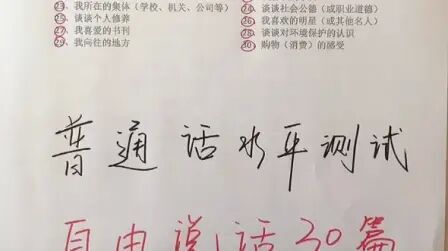 23、我所在的集体（学校、机关、公司等） 24、谈谈社会公德（或职业道德）
25、谈谈个人修养 26、我喜欢的明星（或其他名人）
27、我喜爱的书刊 28、谈谈对环境保护的认识
29、我向往的地方 30、购物（消费）的感受
普通话水平测试
自由说话30篇